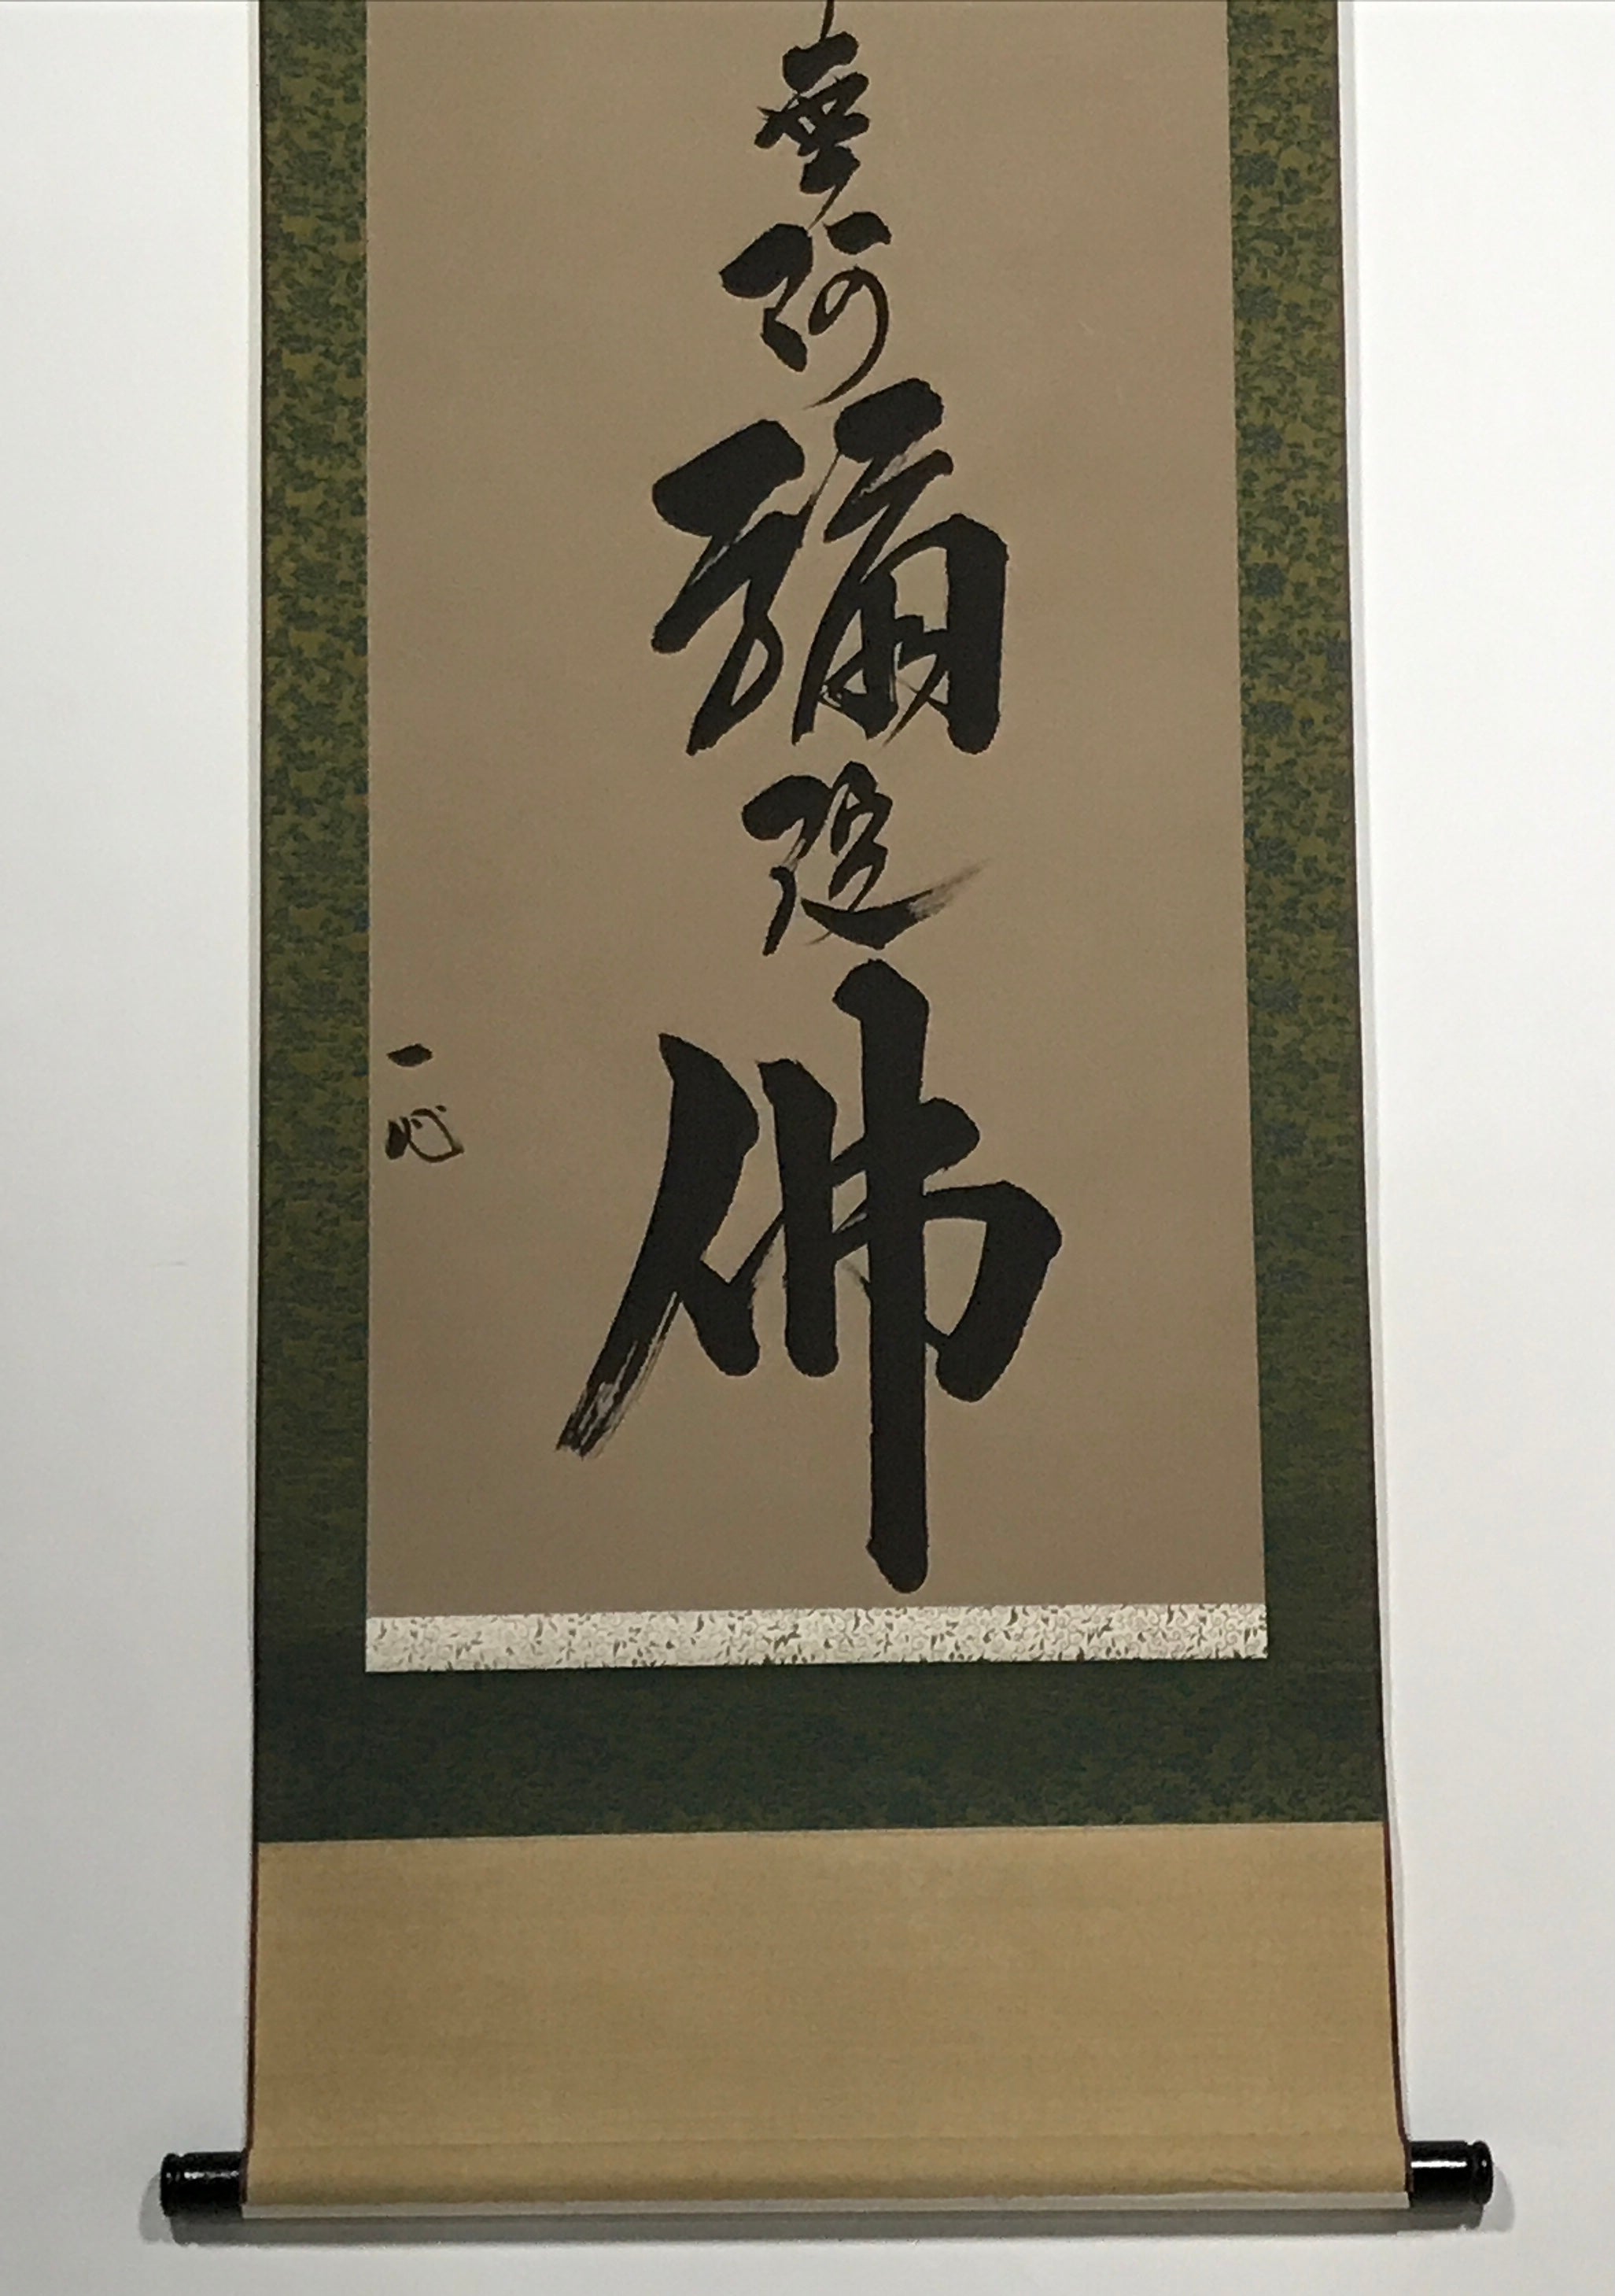 無阿彌陀佛
一心